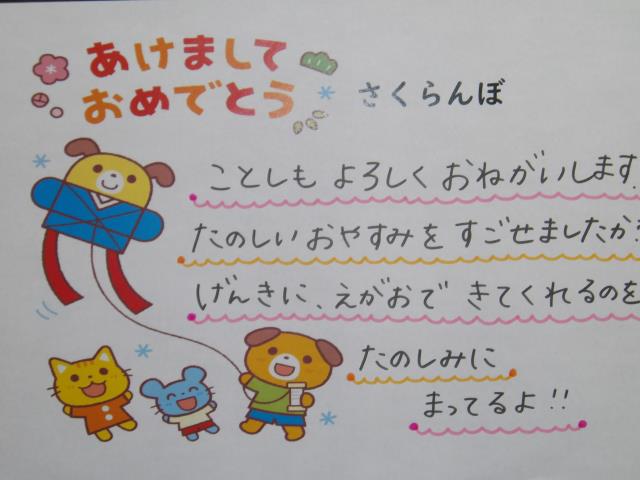 あけまして
おめでとう
さくらんぼ
ことしも よろしく おねがいします
たのしい おやすみを すごせましたか?
げんきに、えがおで きてくれるのを
たのしみに
まってるよ!!